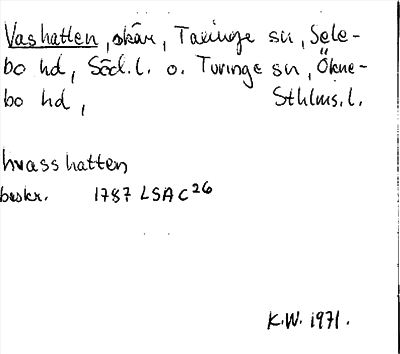 Vashatten, skär, Taxinge sn, Sele-
bo hd, Söd.l. o. Turinge sn, Ökne-
bo hd, Sthlms.l.
hvasshatten
beskr. 1787 LSA C26
K.W. 1971.